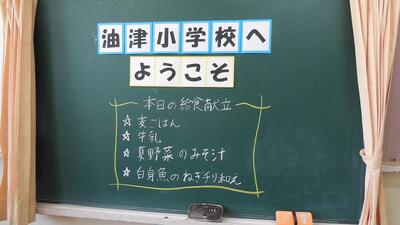 油津小学校へ
ようこそ
本日の給食献立
☆麦ごはん
☆牛乳
☆夏野菜のみそ汁
☆白身魚のねぎチリ和え